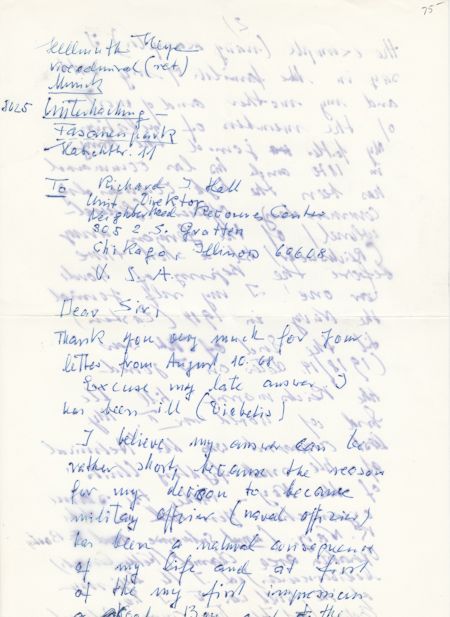 75-
Hellmuth Heye
Viceadmiral (ret)
Munich
8025 Unterhaching -
Fasanenpark
Habichtstr. 11
To Richard J Hall
Unit Direktor
Neighborhood Resource Center
3052 S. Gratten
Chikago, Illinois 60608
U. S. A.
Dear Sir!
Thank you very much for Your
letter from August 10. 68.
Excuse my late answer. I
has been ill (Diabetis)
I believe my answer can be
rather short, because the reason
for my decision to became
military officier (naval officier)
has been a natural consequence
of my life and at first
of the my first impressions
a Boy and the